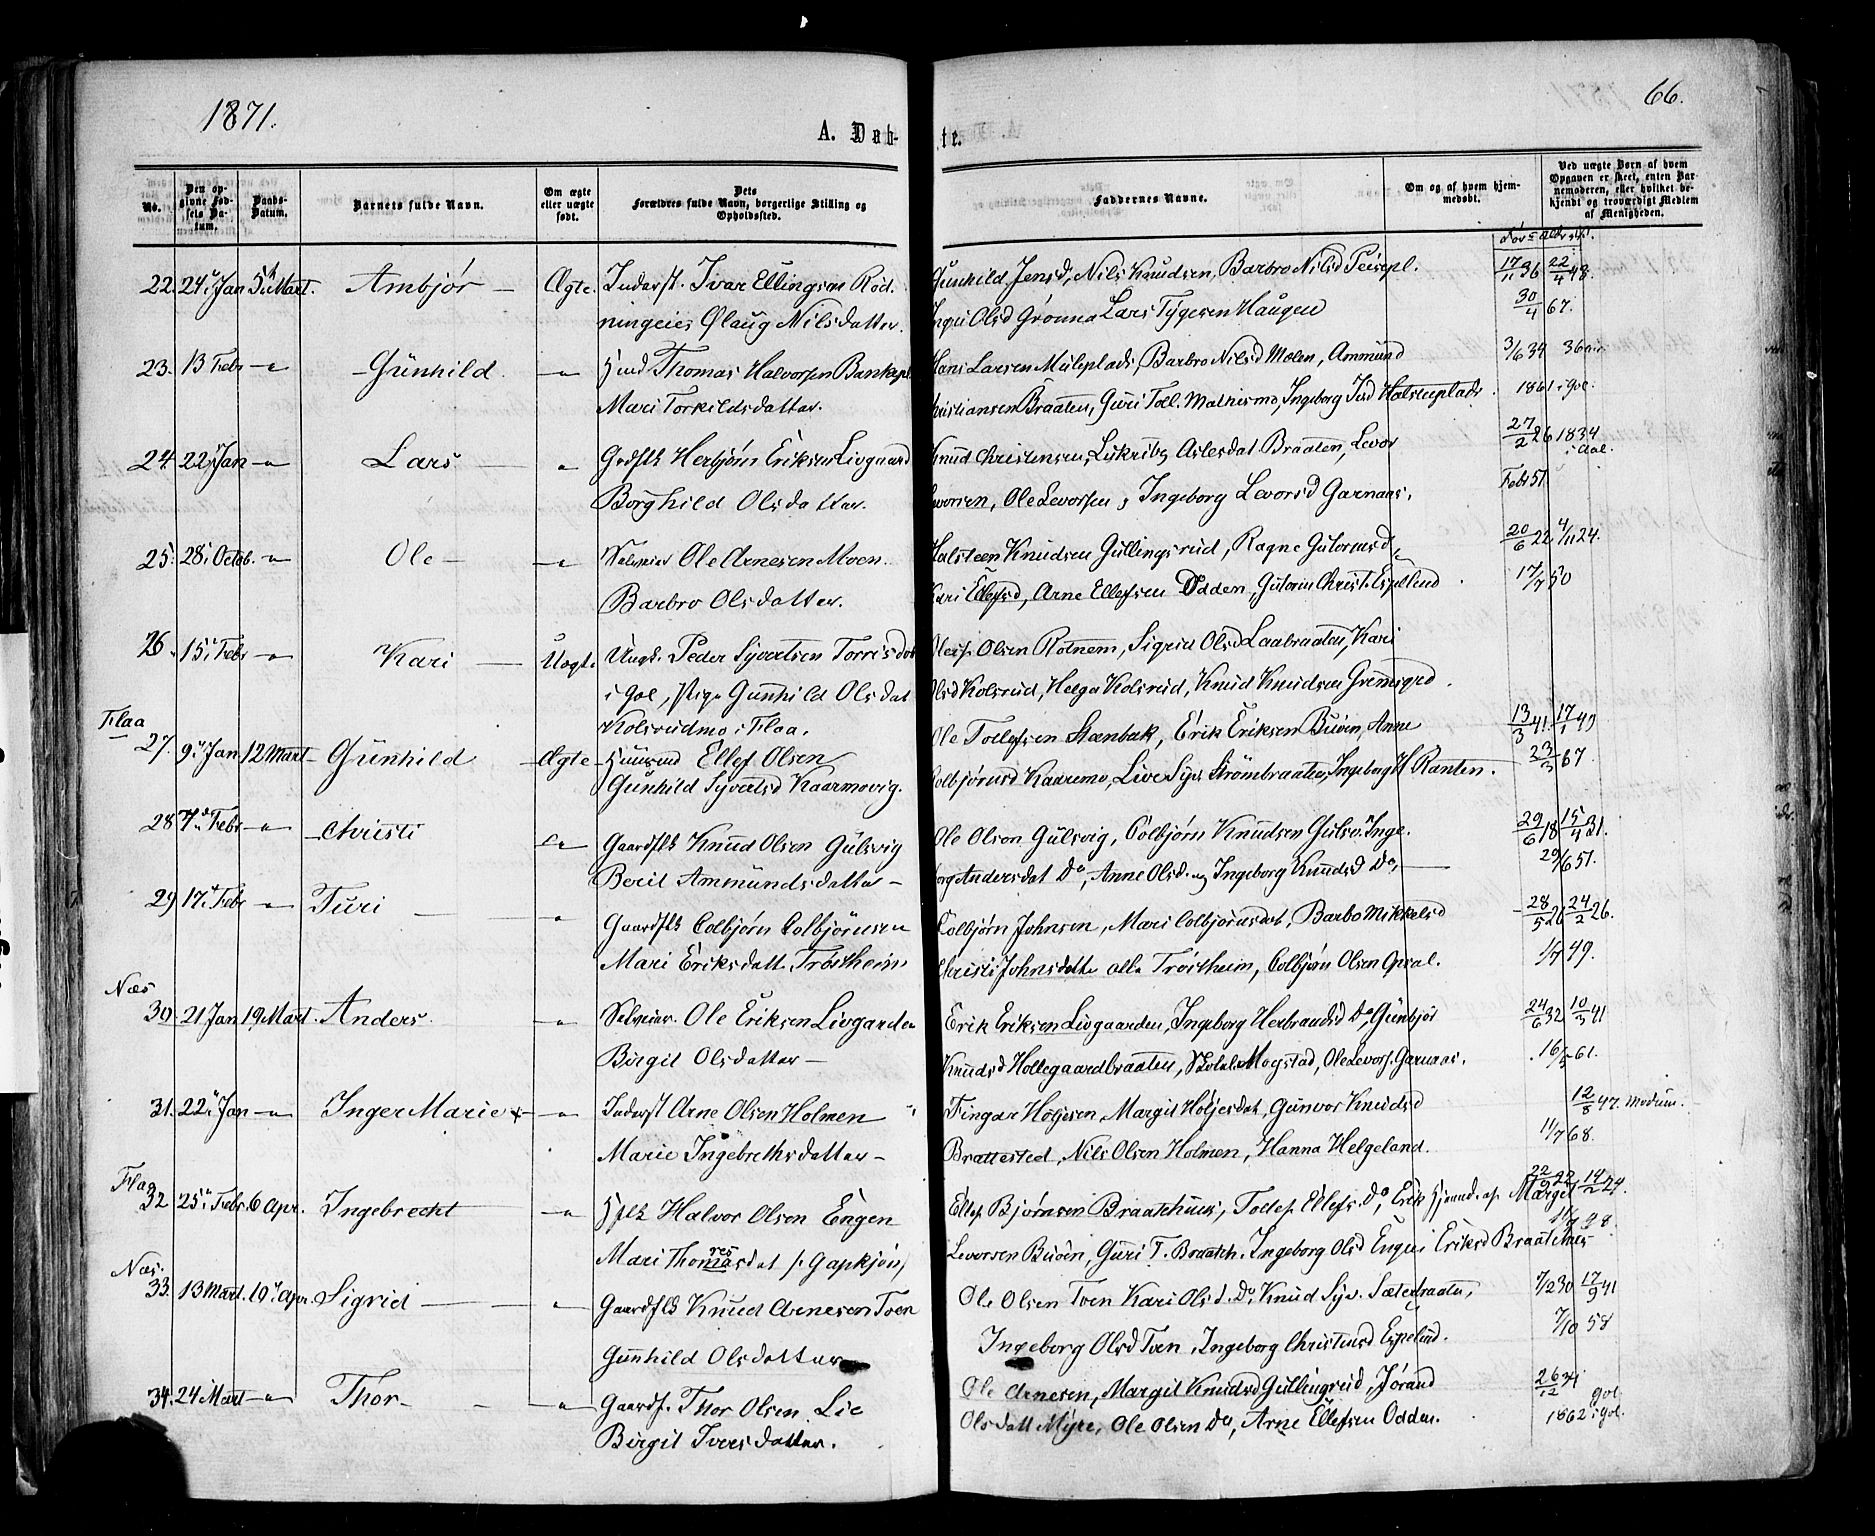 1871.
66.
A. Døb-
te.
No.
Den op-
givne Fød-
sels Da-
tum.
Daabs-
Datum.
Barnets fulde Navn.
Om ægte
eller uægte
født.
Dets
Forældres fulde Navn, borgerlige Stilling og
Opholdssted.
Faddernes Navne.
Om og af hvem hjem-
medøbt.
Ved uægte Børn af hvem
Opgaven er skeet, enten Bar-
nemoderen, eller hvilket be-
kjendt og troværdigt Medlem
af Menigheden.
22. 24 Jan 5 Mart. Ambjør Ægte. Inderst. Ivar Ellingsen Rød. Gunhild Jensd, Nils Knudsen, Barbro Nilsd 17/11 36 22/4 48.
ningeie, Ølaug Nilsdatter. Olsd Grønna Lars Tygesen Haugen 30/4 67.
23. 13 Febr Gunhild Thomas Halvorsen Bankepl Hans Larsen Muleplads, Barbro Nilsd Molen, Ammund 3/6 34
Mari Torkildsdatter. Christiansen Braaten, Guri Toll. Ingeborg 1861 i Gol.
24. 22 Jan Lars Herbjørn Eriksen Livgaard Knud Christensen, Aslesdat Braaten, Levor 27/2 26 1834
i Aal.
Borghild Olsdatter. Levorsen, Ole Levorsen, Ingeborg Levorsd Garnaas. Febr 51
25. 28 Octob. Ole Selveier Ole Arnesen Moen. Halsteen Knudsen Gullingsrud, Ragne Gutormsd 20/6 22 4/11 24.
Barbro Olsdatter. Kari Ellefsd, Arne Ellefsen Odden, Gutorm Christ. Espelund 17/7 50
26. 15 Febr Kari Uægte Ungk. Peder Syvertsen Torrisdat Olsen Rotnem, Sigrid Olsd Laabraaten, Kari
i Gol, Pige Gunhild Olsdat Olsd Kolsrud, Helga Kolsrud, Knud Knudsen Gremsgrd.
Kolsrudmo i Flaa.
Flaa
27. 9 Jan 12 Mart Gunhild Ægte Huusmd Ellef Olsen Ole Tollefsen Stenbak, Erik Eriksen Buøen, Anne 13/3 41. 17/1 49
Gunhild Syvertsd Kaarmovig. Colbjørnsd Kaaremo, Live Syv. Strømbraaten, Ingeborg H Ranten. 23/3 67
28 7 Febr Christi Gaardbr Knud Olsen Gulsvig Ole Olson Gulsvig, Colbjørn Knudsen Gulsv. Inge- 29/6 18 15/4 31.
Berit Ammundsdatter borg Andersdat Do, Anne Olsd. og Ingeborg Knudsd Do, 29/6 51.
29 17 Febr Turi Gaardbr Colbjørn Colbjørnsen Colbjørn Johnsen, Mari Colbjørnsdat, Barbo Mikkelsd 28/5 26 24/2 26.
Mari Eriksdatt. Trøstheim Christi Johnsdatte alle Trøstheim, Colbjørn Olsen Opsal. 1/7 49.
Næs
30. 21 Jan 19 Mart. Anders. Selveier. Ole Eriksen Livgarden Erik Eriksen Livgaarden, Ingeborg Herbrandsd Do, Gunbjør 24/6 32 10/3 41
Birgit Olsdatter Knudsd Hollegaardbraaten, Mogstad, Ole Levors. Garnaas. 16/5 61.
31. 22 Jan Inger Marie Inderst Arne Olsen Holmen Fingar Holjesen, Margit Holjesdat, Gunvor Knudsd 12/8 47. Modum.
Marie Ingebrethsdatter Brattested, Nils Olsen Holmen, Hanna Helgeland. 11/7 68.
Flaa
32 25 Febr. 6 Apr. Ingebrecht Halvor Olsen Engen Ellef Bjørnsen Braathuus, Tollef Ellefs. Do, Erik Marget 14/2 24.
Mari Thomasdat Levorsen Buøen, Guri T. Braath. Ingeborg Olsd Engen Eriksd Braathus
Næs.
33. 13 Mart. 10 Apr. Sigrid Gaardbr Knud Arnesen Toen Ole Olsen Toen Kari Olsd. Do, Knud Syv. Sæterbraaten, 7/2 30 17/9 41
Gunhild Olsdatter Ingeborg Olsd Toen, Ingeborg Christensd Espelund. 7/10 58
34. 24 Mart Thor Gaardb. Thor Olsen Lie Ole Arnesen, Margit Knudsd Gullingsrud, Jørand 26/12 34
Birgit Iversdatter. Olsdatt Myre, Ole Olsen Do, Arne Ellefsen Odden. 1862 i Gol.